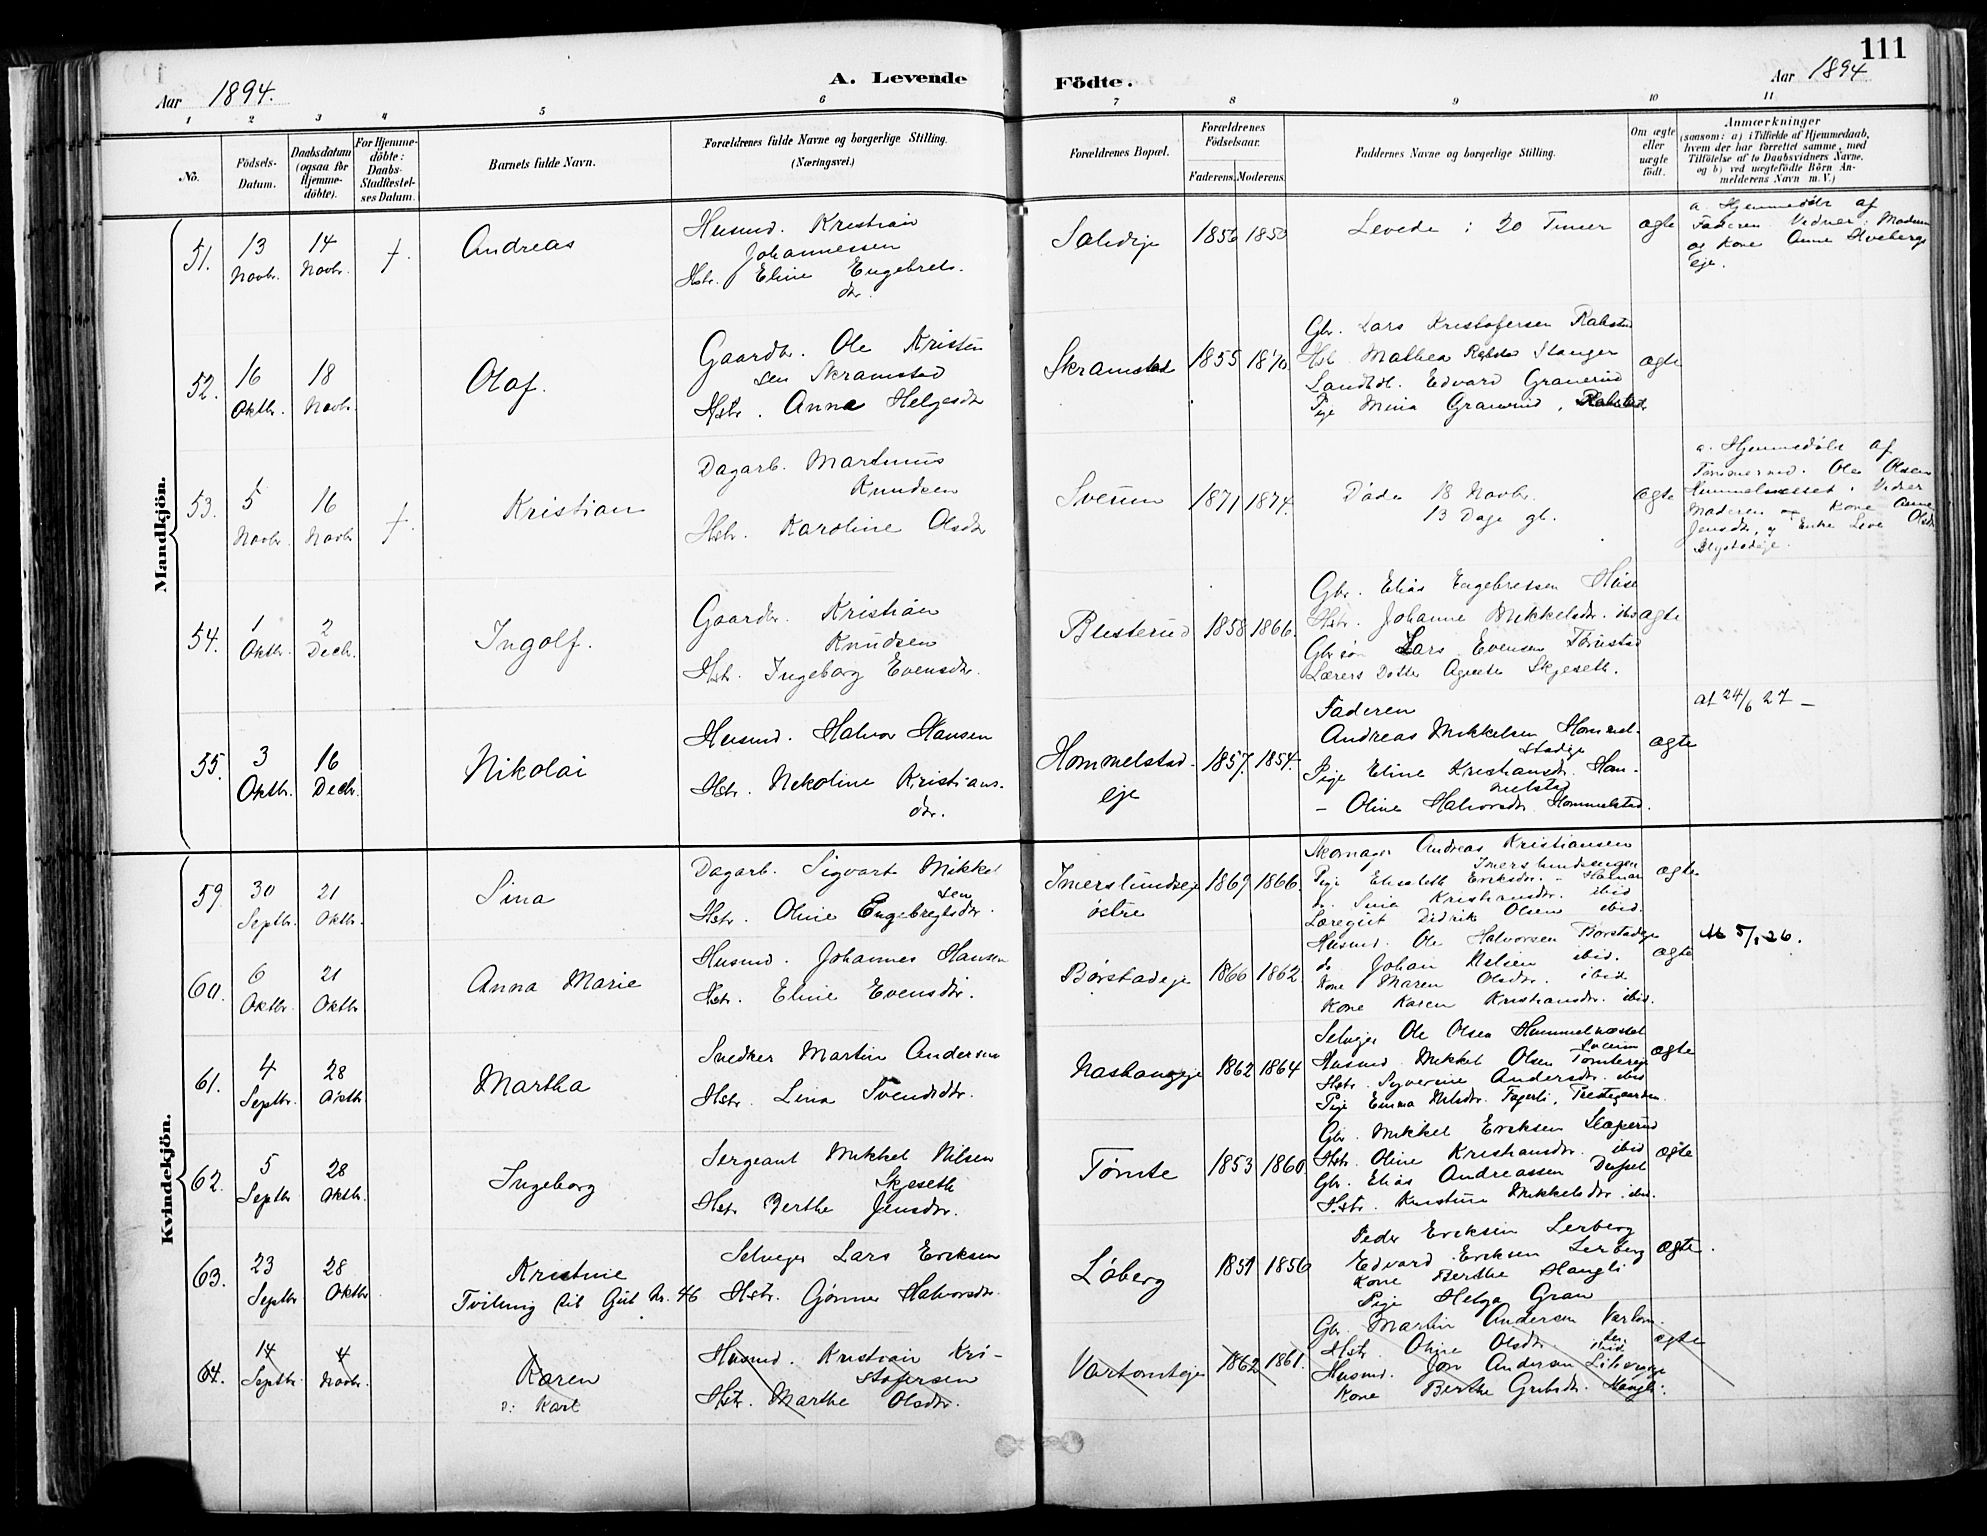 111
Aar 1894.
A. Levende Födte.
Aar 1894
1 2 3 4 5 6 7 8 9 10 11
No.
Födsels-Datum.
Daabsdatum (ogsaa for Hjemme-döbte).
For Hjemme-döbte: Daabs-Stadfæstel-ses Datum.
Barnets fulde Navn.
Forældrenes fulde Navne og borgerlige Stilling.
(Næringsvei.)
Forældrenes Bopæl.
Forældrenes Födselsaar.
Faderens. Moderens.
Faddernes Navne og borgerlige Stilling.
Om ægte eller uægte födt.
Anmærkninger
(saasom: a) i Tilfælde af Hjemmedaab,
hvem der har forrettet samme, med
Tilföielse af to Daabsvidners Navne,
og b) ved uægtefödte Börn An-
melderens Navn m. V.)
Mandkjön.
51. 13 Novbr. 14 Novbr. †
Andreas
Husmd. Kristian
Johannessen
Hstr. Eline Engebrets.
dr.
1856
Levede i 20 Timer
ægte
a. Hjemmedøbt af
Faderen. Vidner: Moderen
og Kone Anne
eje.
52. 16 Oktbr. 18 Novbr.
Olaf.
Gaardbr. Ole Kristen
sen Skramstad
Hstr. Anna Helgesdr
Skramstad 1855 1870
Gbr. Lars Kristofersen
Hst. Mathea Stanger
Landhdl. Edvard Granerud
Pige Mina Granerud,
ægte
53. 5 Novbr. 16 Novbr. †
Kristian
Dagarb. Martinus
Knudsen
Hstr. Karoline Olsdr
Sveum 1871 1874.
Døde 18 Novbr.
13 Dage gl.
ægte
a. Hjemmedøbt af
Tømmermd. Ole Olsen
Hummelnesset. Vidner
Moderen og Kone Anne
Jensdr, og Enke Olsdr
54. 1 Oktbr. 2 Decbr.
Ingolf.
Gaardbr. Kristian
Knudsen
Hstr. Ingeborg Evensdr.
1858 1866.
Gbr. Elias Engebretsen
Hstr. Johanne Mikkelsdr. ibid
Gbrsøn Lars Evensen Tømstad
Lærers Datter Agnete Skjeseth.
ægte
55. 3 Oktbr. 16 Decbr.
Nikolai
Husmd. Halvor Hansen
Hstr. Nekoline Kristians.
dr.
Hommelstad-
eje
1857. 1854.
Faderen
Andreas Mikkelsen Hommel-
stadeje
Pige Eline Kristiansdr. Hom-
melstad
- Oline Halvorsdr. Hommelstad.
ægte
at 24/6 27 —
Kvindekjön.
59. 30 Septbr. 21 Oktbr.
Sina
Dagarb. Sigvart Mikkel
sen
Hstr. Oline Engebregtsdr.
Imerslundeje
østre
1867 1866.
Skomager Andreas Kristiansen
Imerslundengen
Pige Elisabeth Eriksdr.
do Sina Kristiansdr. ibid
Læregut Didrik Olsen ibid.
ægte
60. 6 Oktbr. 21 Oktbr.
Anna Marie
Husmd. Johannes Hansen
Hstr. Eline Evensdr.
Børstadeje 1866 1862
Husmd. Ole Halvorsen Børstadeje
do Johan Nilsen ibid.
Kone Maren Olsdr. ibid
Kone Karen Kristiansdr. ibid.
ægte
61. 4 Septbr. 28 Oktbr.
Martha
Snedker Martin Andersen
Hstr. Lina Svendsdr.
1862 1864
Selvejer Ole Olsen Hummelnæsset
Sveum
Husmd. Mikkel Olsen Tømteeje
Hstr. Syverine Andersdr. ibid
Pige Emma Nilsdr. Fagerli, Prestegaarden.
ægte
62. 5 Septbr. 28 Oktbr.
Ingeborg
Sergeant Mikkel Nilsen
Skjeseth
Hstr Berthe Jensdr.
Tømte 1853 1860.
Gbr. Mikkel Eriksen
Hstr. Oline Kristiansdr. ibid
Gbr. Elias Andreassen
Hstr. Kristine Mikkelsdr. ibid.
ægte
63. 23 Septbr 28 Oktbr
Kristine
Tvilling til Gut Nr. 46
Selveger Lars Eriksen
Hstr. Gønner Halvorsdr.
Løberg 1851 1856
Peder Eriksen Lerberg
Edvard Eriksen Lerberg
Kone Berthe Haugli
Pige Helga Gran
ægte.
64. 14 Septbr. 4 Novbr.
Karen
o: Karl
Husmd. Kristian Kri-
stofersen
Hstr. Marthe Olsdr.
Vortomteje 1862 1861.
Gbr. Martin Andersen
Hstr. Oline Olsdr. ibid
Husmd. Jon Andersen
Kone Berthe
ægte